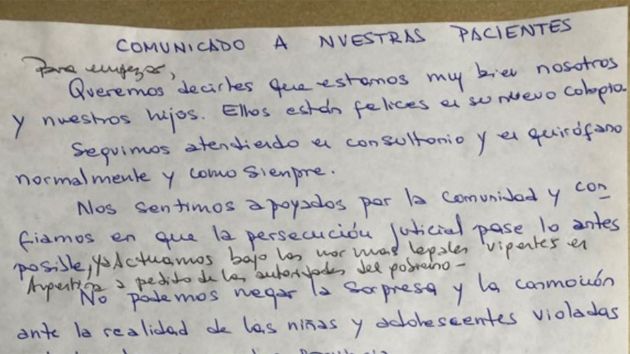 COMUNICADO A NUESTRAS PACIENTES
Para empezar,
Queremos decirles que estamos muy bien nosotros
y nuestros hijos. Ellos están felices en su nuevo colegio.
Seguimos atendiendo en consultorio y en quirófano
normalmente y como siempre.
Nos sentimos apoyados por la comunidad y con
fiamos en que la persecución judicial pase lo antes
posible, ya Actuamos bajo las normas legales vigentes en
Argentina a pedido de las autoridades del gobierno-
No podemos negar la sorpresa y la conmoción
ante la realidad de las niñas y adolescentes violadas